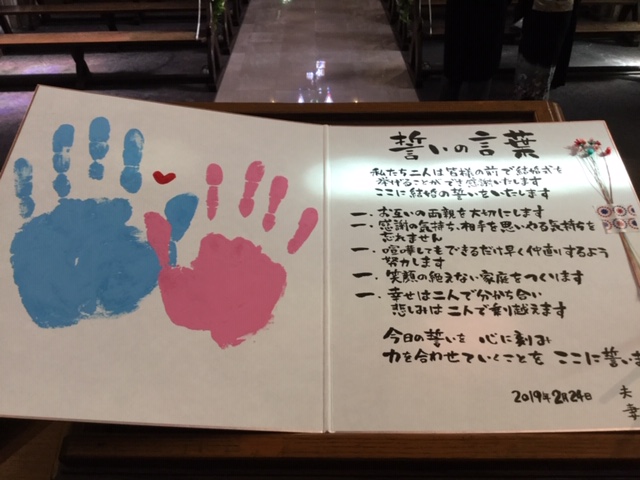 誓いの言葉
私たち二人は皆様の前で結婚式を
挙げることができ感謝いたします
ここに結婚の誓いをいたします
一. お互いの両親を大切にします
一. 感謝の気持ち、相手を思いやる気持ちを
忘れません
一. 喧嘩してもできるだけ早く仲直りするよう
努力します
一. 笑顔の絶えない家庭をつくります
一. 幸せは二人で分かち合い
悲しみは二人で乗り越えます
今日の誓いを 心に刻み
力を合わせていくことを ここに誓いま
2019年2月24日
夫
妻